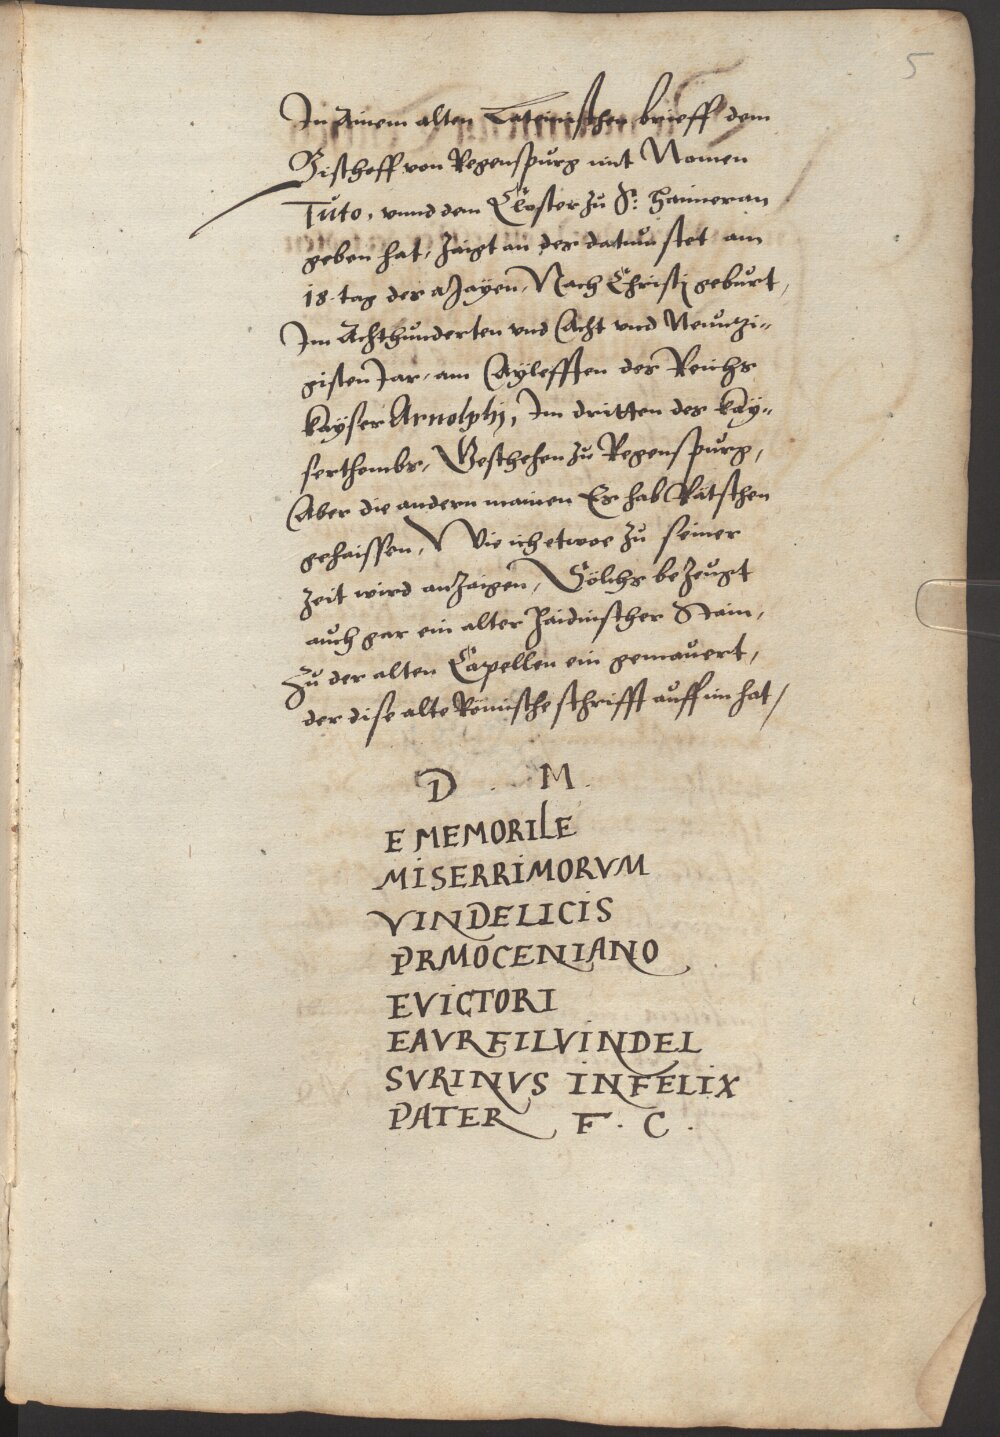 5
In Ainem alten Lateinischen brieff dem
Bischoff von Regenspurg mit Namen
Tuto, vnnd dem Closter zu S: Haimeran
geben hat, zaigt an des datum stet am
18. tag des Mayen, Nach Christi geburt,
Im Achthunderten vnd Acht vnd Neuntzi-
gisten Jar, am Aylefften des Reichs
kayser Arnolphj, Im dritten des kay-
serthombs, Geschehen zu Regenspurg,
Aber die andern mainen Er hab Rätschen
gehaissen, Wie ich etwoe zu seiner
Zeit wird anzaigen, Sölchs bezeugt
auch gar ein alter haidnischer Stain,
Zu der alten Capellen ein gemauert,
der dise alte Römische schrifft auff im hat,
D . M .
E MEMORILE
MISERRIMORVM
VINDELICIS
PRMOCENIANO
EVICTORI
EAVRFILVINDEL
SVRINVS INFELIX
PATER F . C .